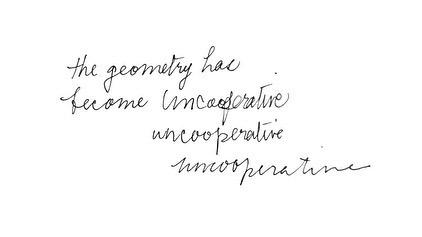 the geometry has
become uncooperative
uncooperative
uncooperative